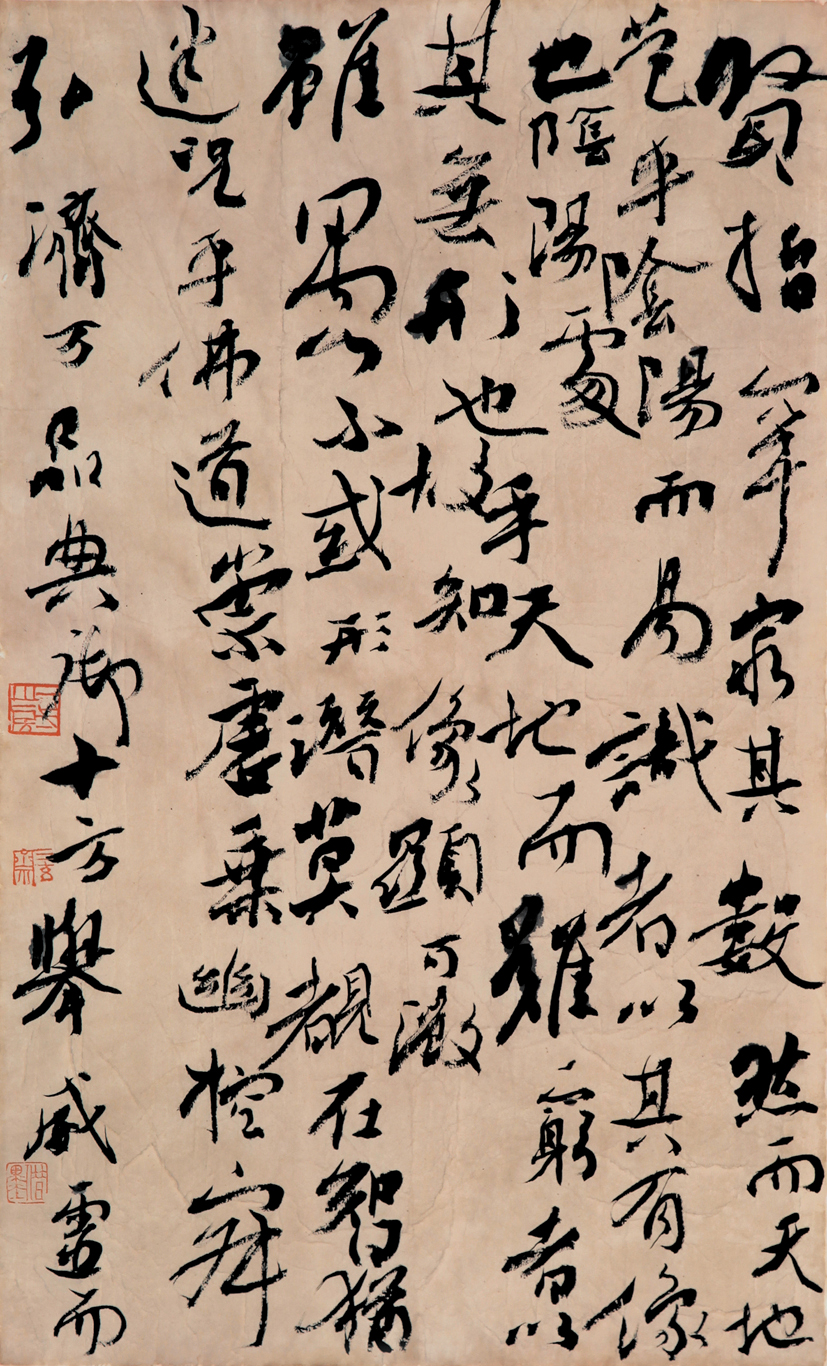 賢哲罕窮其數然而天地
苞乎陰陽而易識者以其有像
也陰陽處乎天地而難窮者以
其無形也故知像顯可徵
雖愚不惑形潛莫覩在智猶
迷況乎佛道崇虛乘幽控寂
弘濟万品典御十方舉威靈而